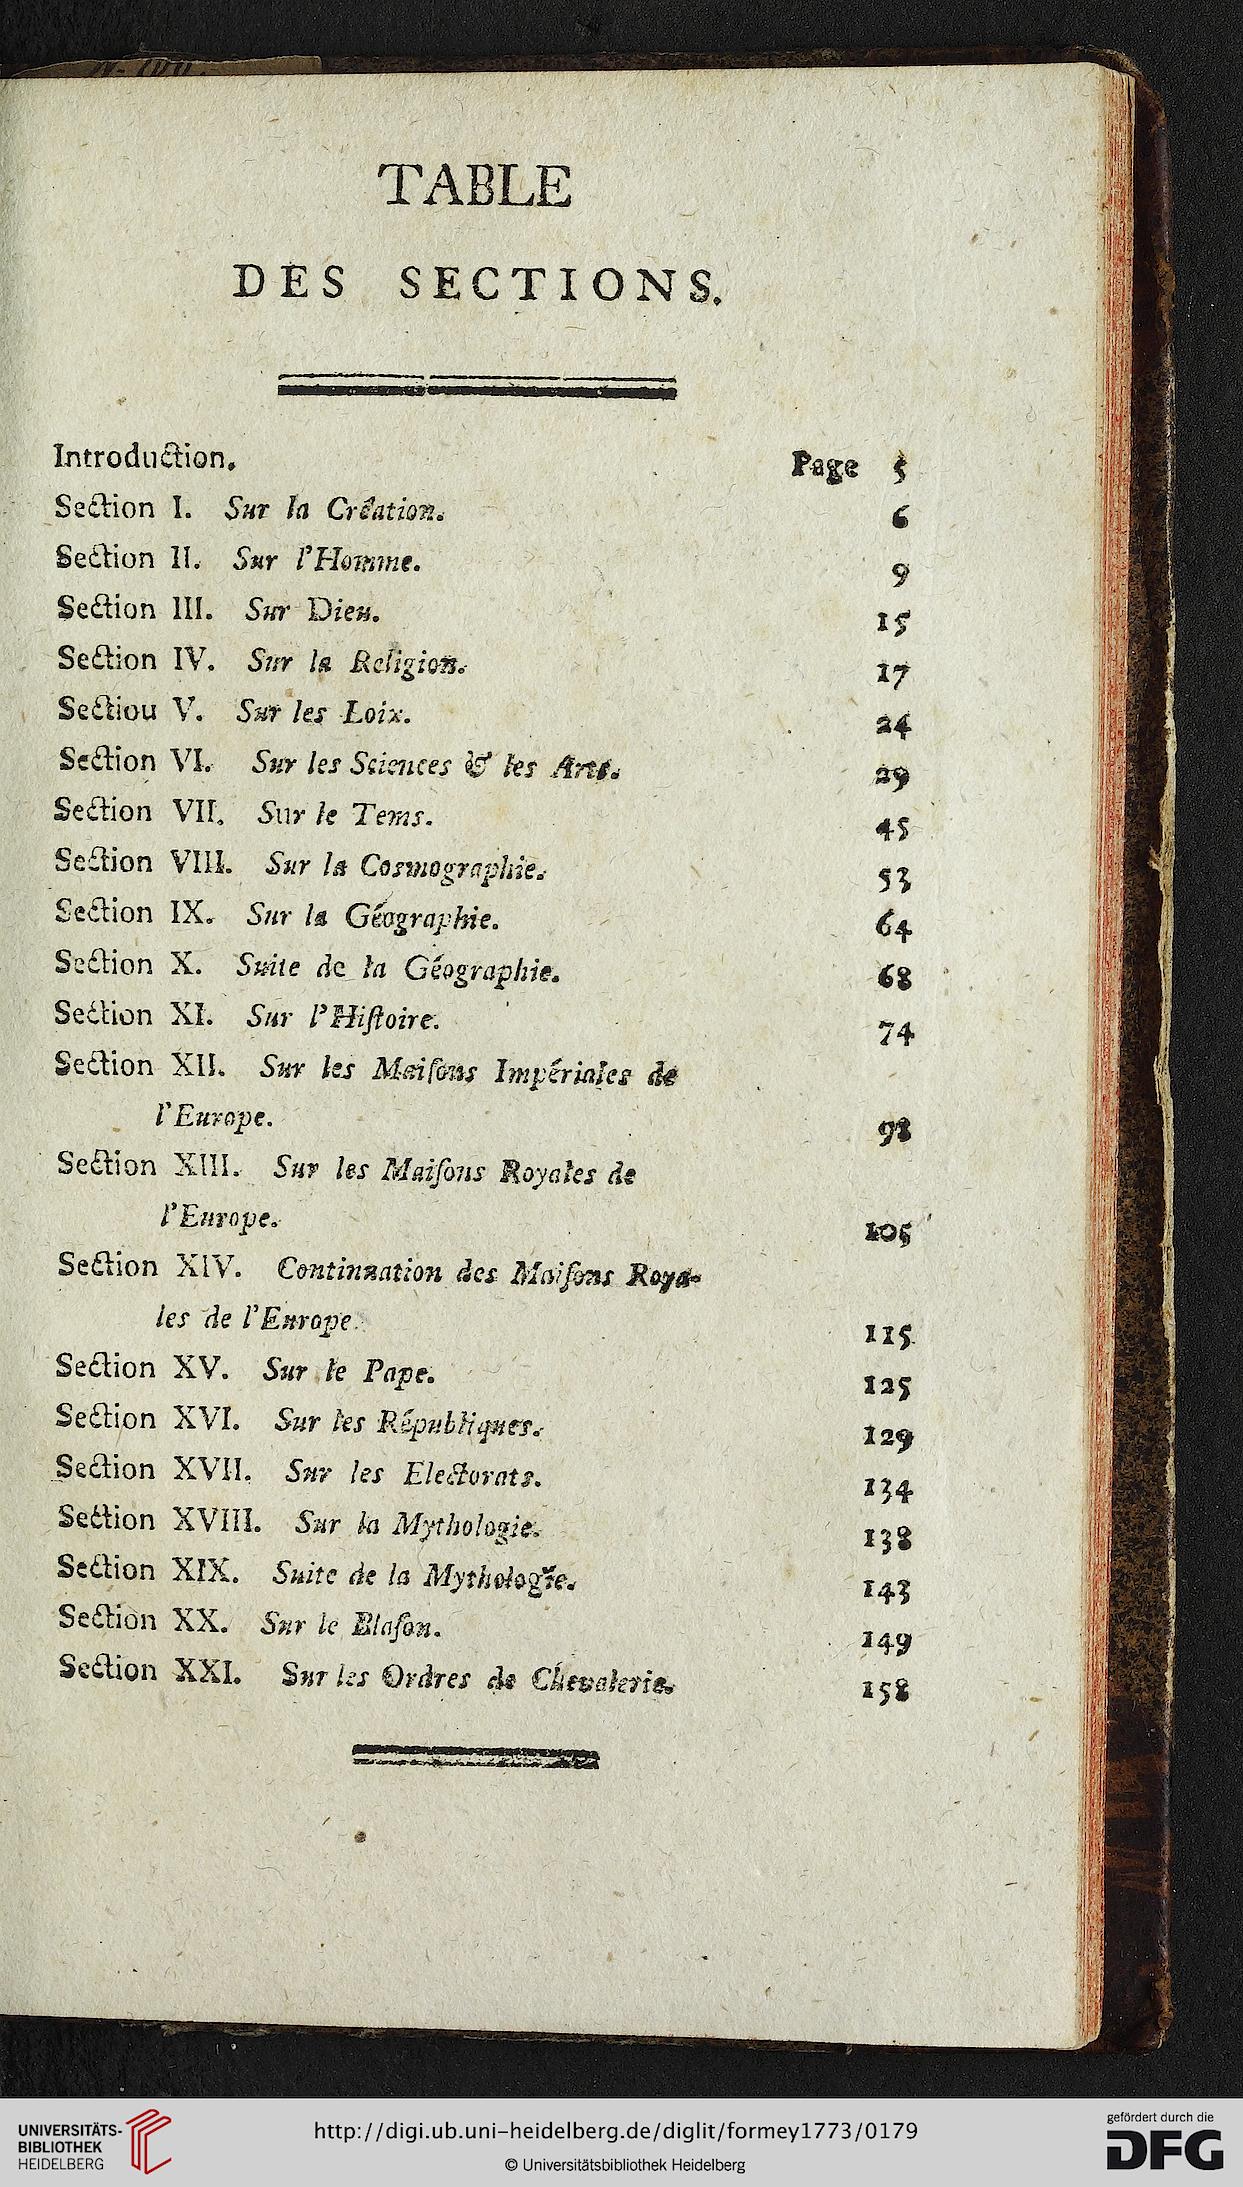 TABLE
DES SECTIONS.
Introduction. Page 5
Section I. Sur la Création. 6
Section II. Sur l'Homme. 9
Section III. Sur Dieu. 15
Section IV. Sur la Religion. 17
Sectiou V. Sur les Loix. 24
Section VI. Sur les Sciences & les Arts. 29
Section VII. Sur le Tems. 45
Section VIII. Sur la Cosmographie. 53
Section IX. Sur la Géographie. 64
Section X. Suite de la Géographie. 68
Section XI. Sur l'Hiſtoire. 74
Section XII. Sur les Maiſons Impériales de
l'Europe. 98
Section XIII. Sur les Maiſons Royales de
l'Europe. 105
Section XIV. Continuation des Maiſons Roya-
les de l'Europe. 115
Section XV. Sur le Pape. 125
Section XVI. Sur les Républiques. 129
Section XVII. Sur les Electorats. 134
Section XVIII. Sur la Mythologie. 138
Section XIX. Suite de la Mythologie. 143
Section XX. Sur le Blaſon. 149
Section XXI. Sur les Ordres de Chevalerie. 158
UNIVERSITÄTS-
BIBLIOTHEK
HEIDELBERG
http://digi.ub.uni-heidelberg.de/diglit/formey1773/0179
© Universitätsbibliothek Heidelberg
gefördert durch die
DFG